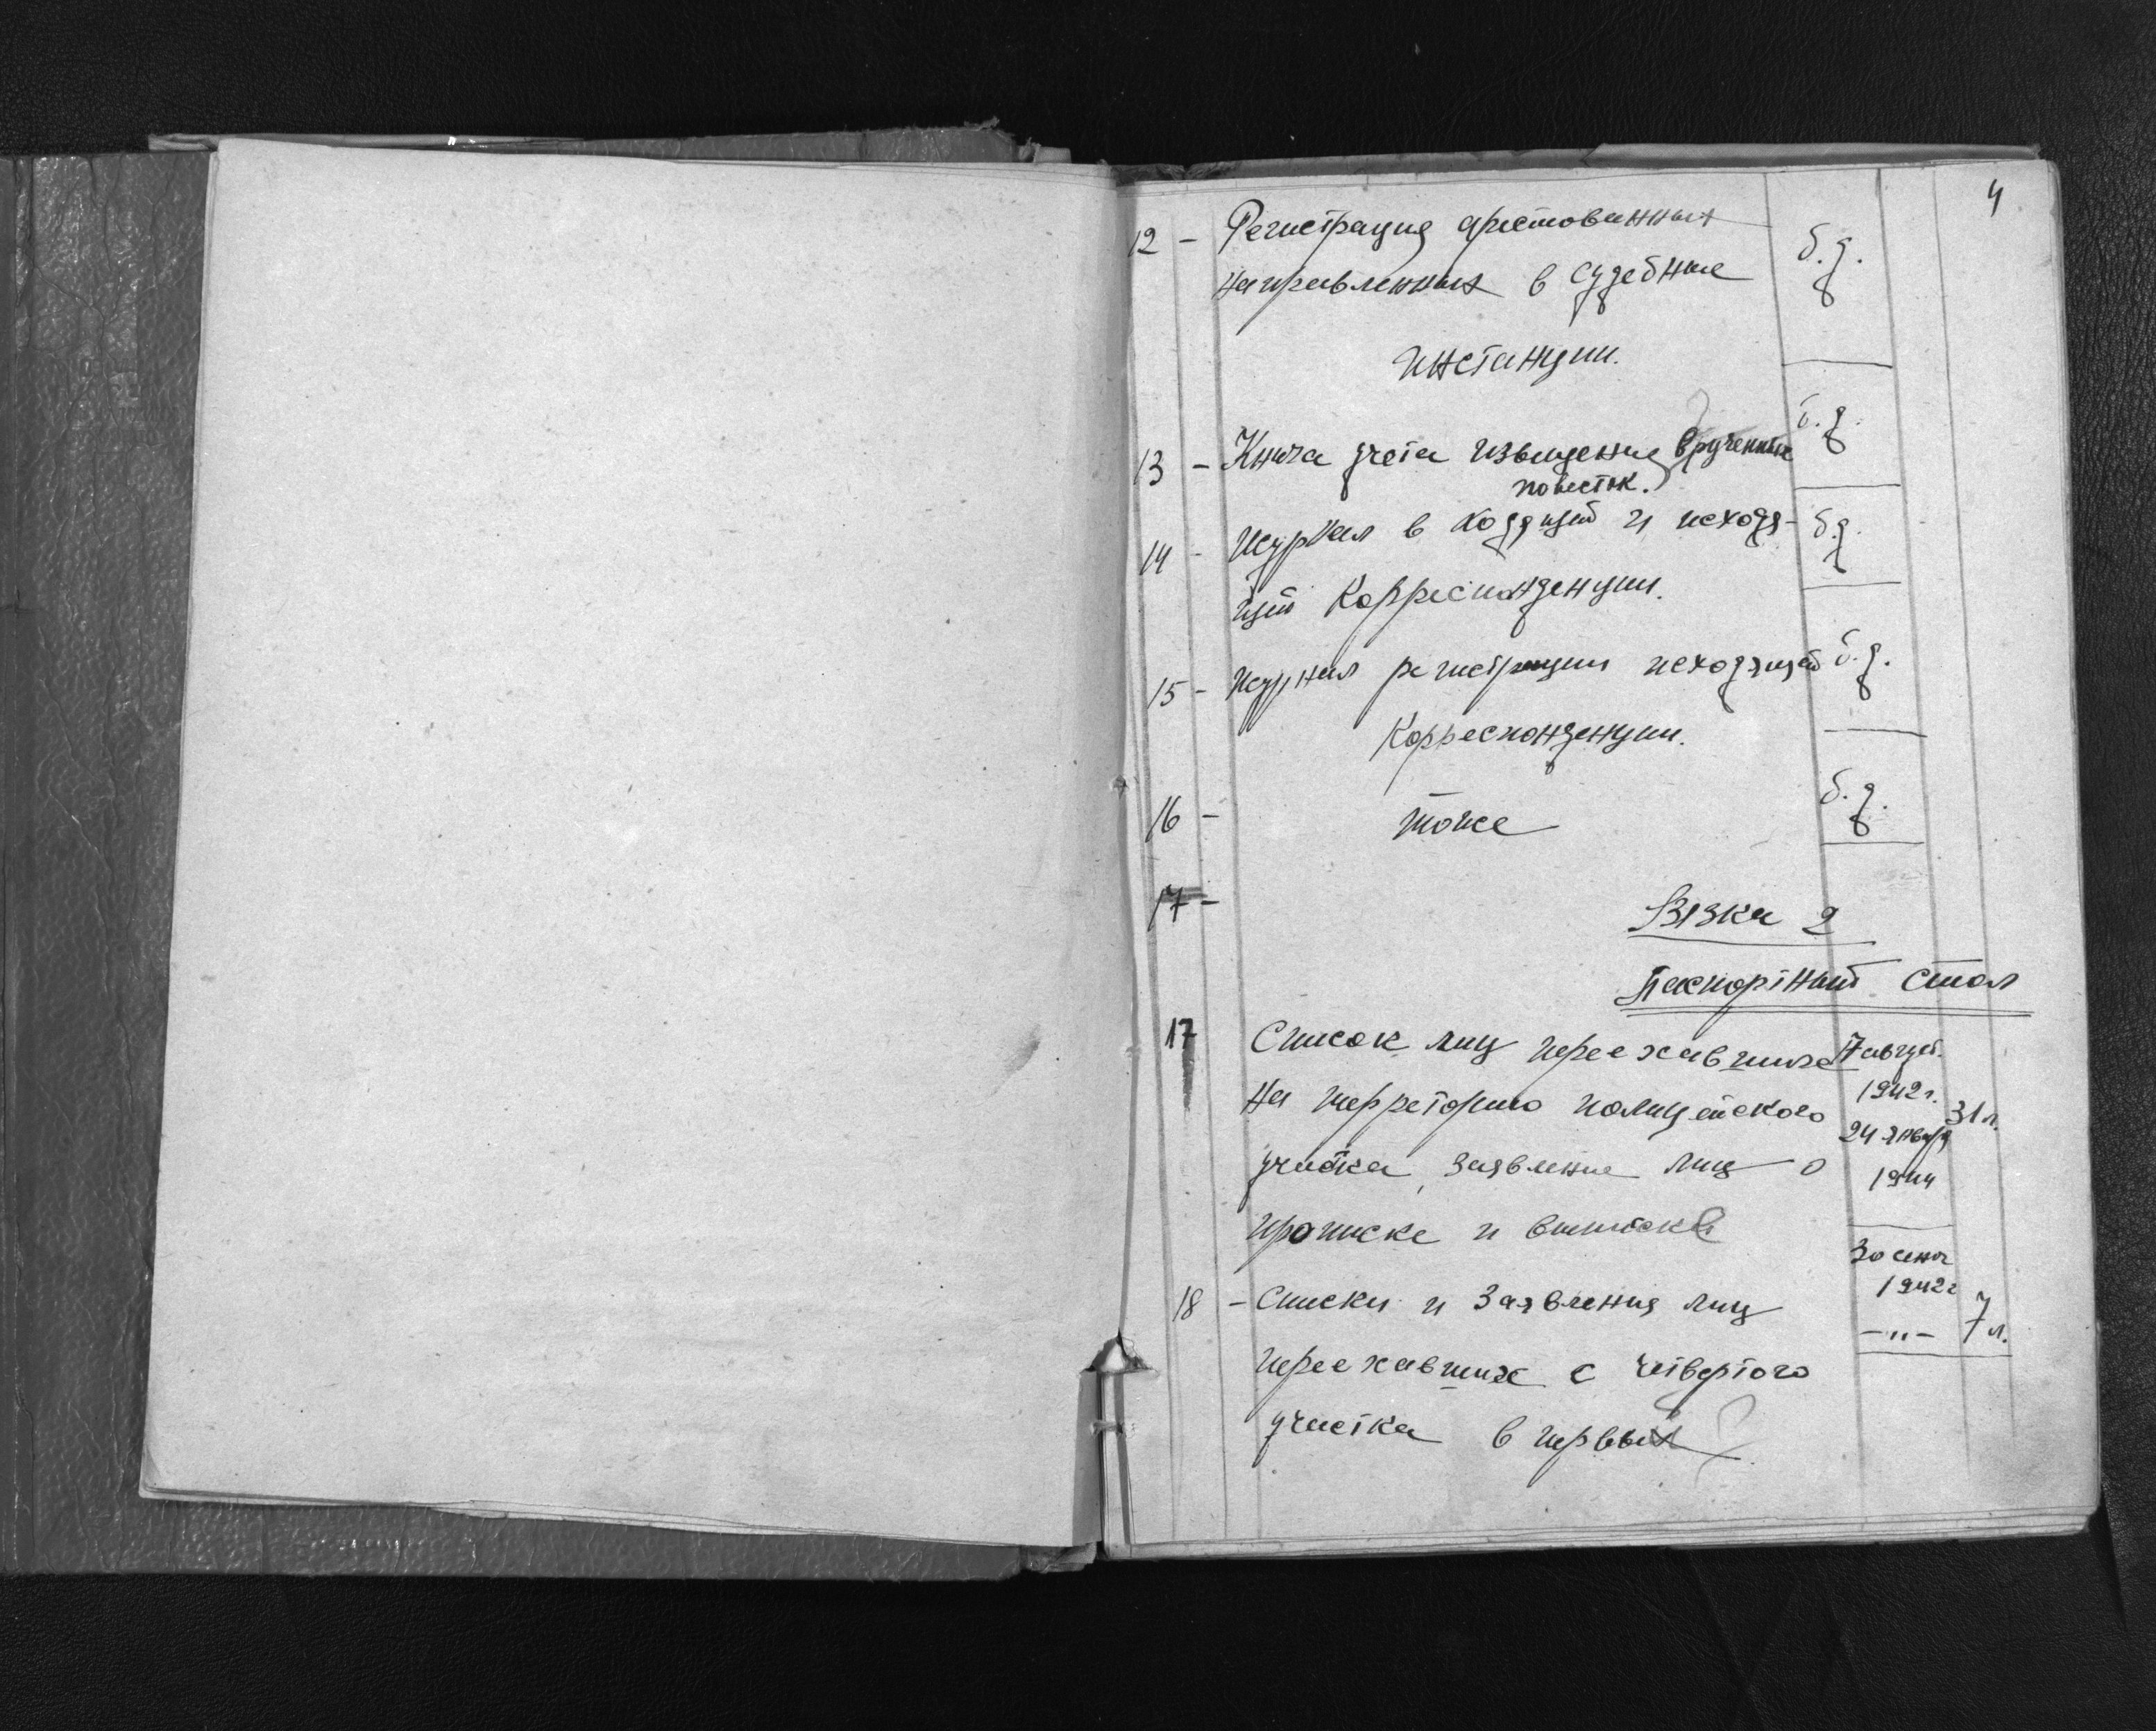 4
12 - Регистрация арестованных б.д.
направленных в судебные
инстанции.
13 - Книга учета извещение врученных б.д.
повесток.
14 - Журнал в ходящий и исходя- б.д.
щий корреспонденции.
15 - Журнал регистрации исходящей б.д.
Корреспонденции.
16 - тоже б.д.
17 -
Вязка 2
Паспортный стол
17 Список лиц переехавших 17 август.
на терреторию полицейского 1942 г. 31 л.
участка, заявление лиц о 24 января
прописке и выписке 1944
18 - Списки и Заявления лиц 30 сент 1942 г
переехавших с четвертого -"- 7 л.
участка в первый